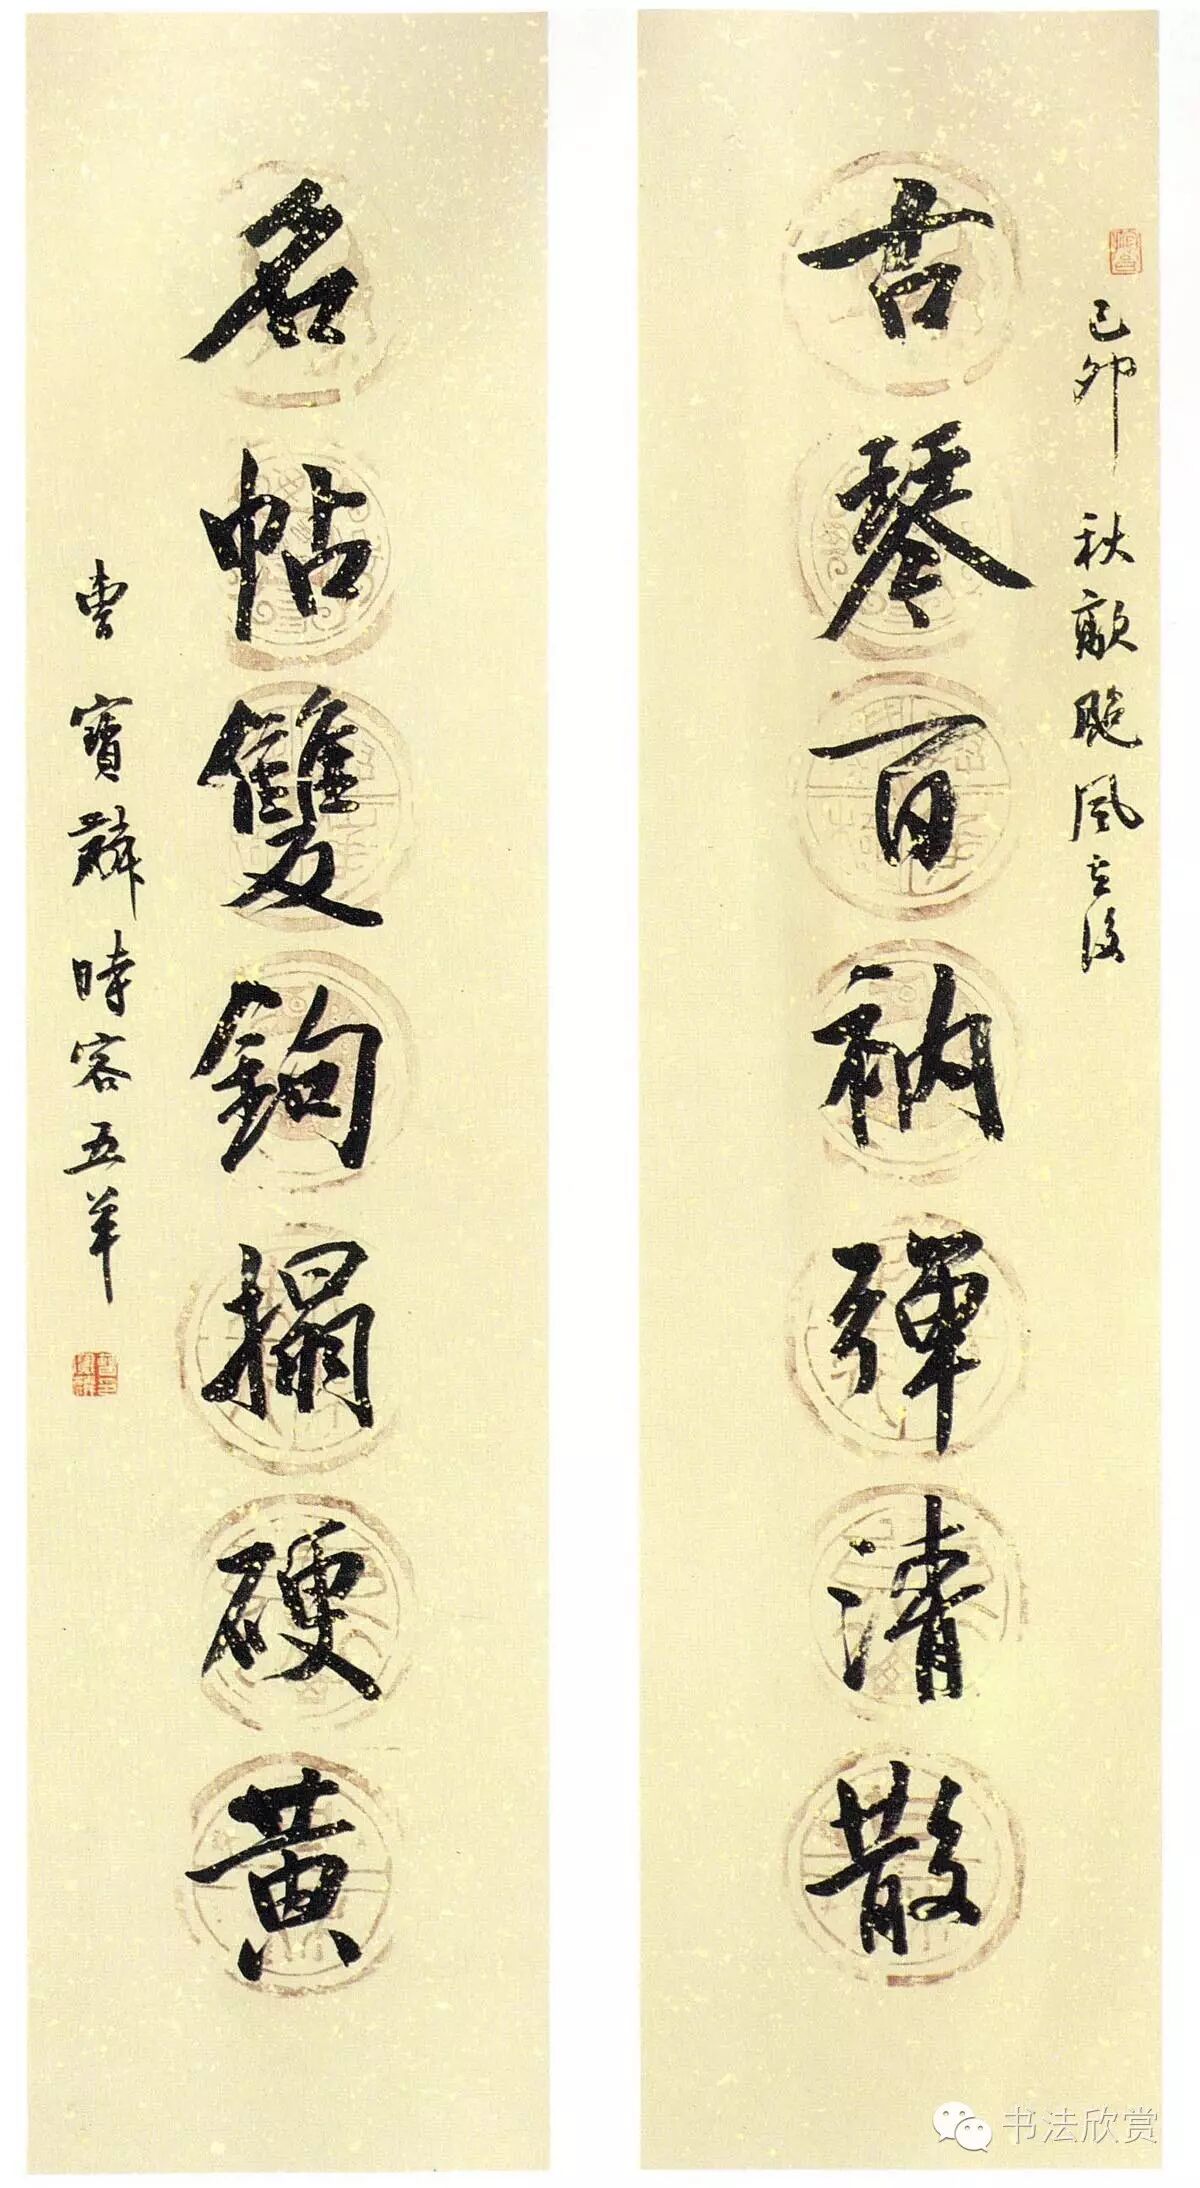 己卯秋颱風之後
古琴百衲彈清散
名帖雙鉤搨硬黄
曹寶麟時客五羊
书法欣赏